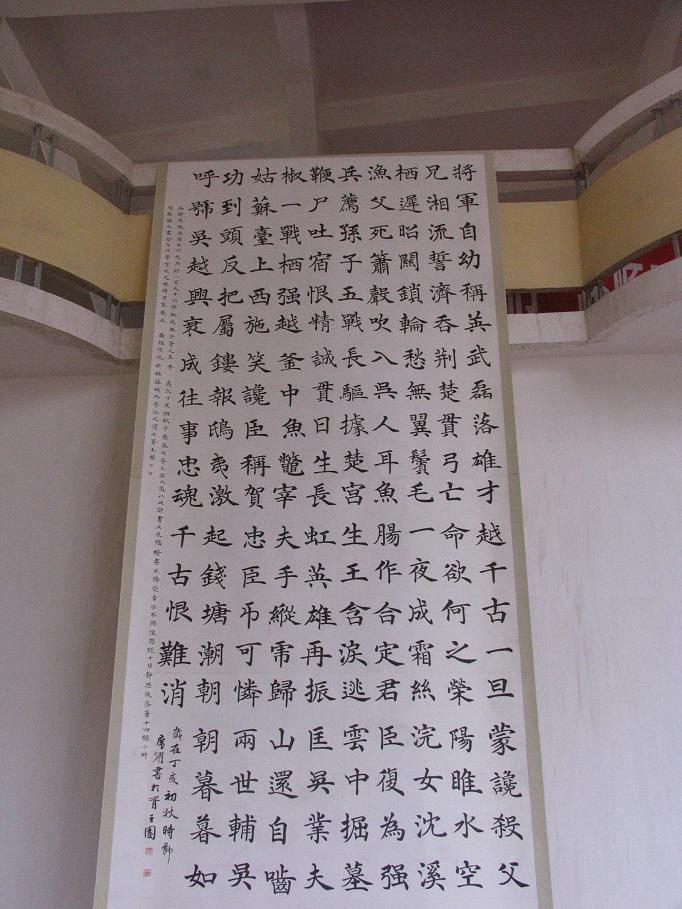 將軍自幼稱英武磊落雄才越千古一旦蒙讒殺父
兄湘流誓濟吞荆楚貫弓亡命欲何之榮陽睢水空
栖遲昭關鎖輪愁無翼鬢毛一夜成霜絲浣女沈溪
漁父死簫聲吹入吳人耳魚腸作合定君臣復為强
兵薦孫子五戰長驅據楚宮生王含淚逃雲中掘墓
鞭尸吐宿恨精誠貫日生長虹英雄再振匡吳業夫
椒一戰栖强越釜中魚鼈宰夫手縱虎歸山還自嚙
姑蘇臺上西施笑讒臣稱賀忠臣吊可憐兩世輔吳
功到頭反把屬鏤報鴟夷激起錢塘潮朝朝暮暮如
呼號吳越興衰成往事忠魂千古恨難消
歲在丁亥初秋時節
書於胥王園